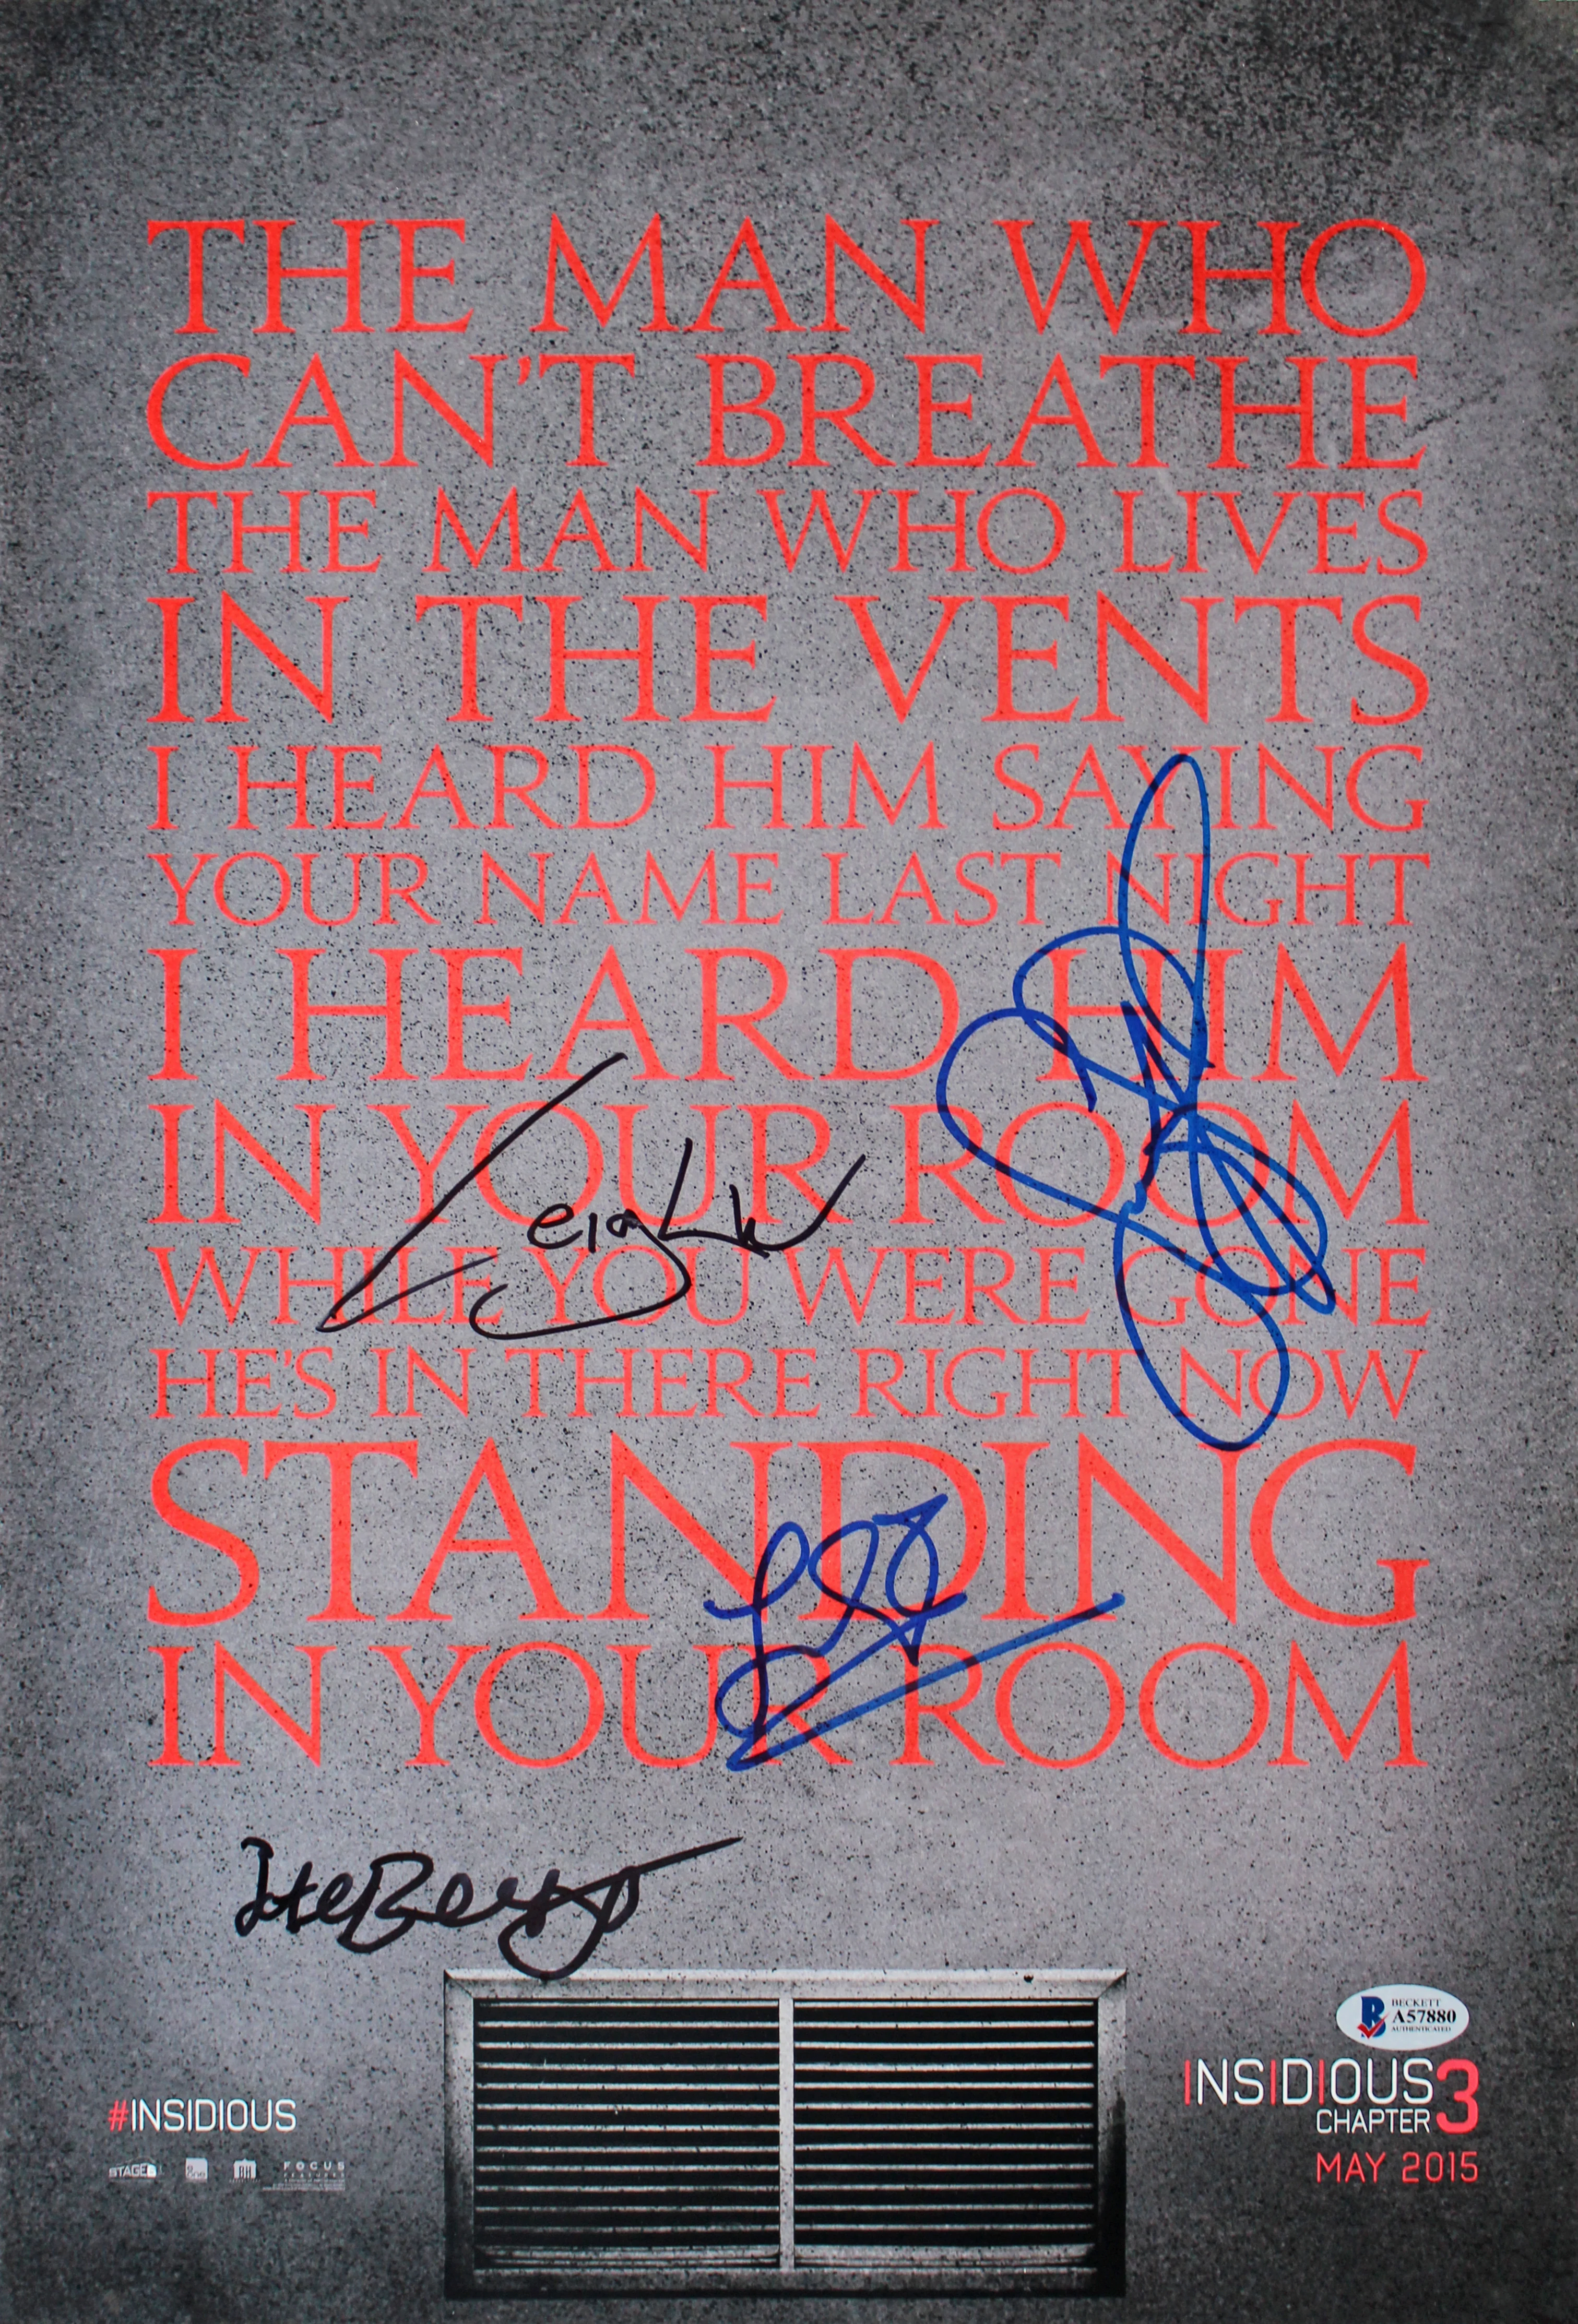 THE MAN WHO
CAN'T BREATHE
THE MAN WHO LIVES
IN THE VENTS
I HEARD HIM SAYING
YOUR NAME LAST NIGHT
I HEARD HIM
IN YOUR ROOM
WHILE YOU WERE GONE
HE'S IN THERE RIGHT NOW
STANDING
IN YOUR ROOM
Leigh W
BECKETT
A57880
AUTHENTICATED
INSIDIOUS 3
CHAPTER
MAY 2015
#INSIDIOUS
STAGE 6
FOCUS
FEATURES